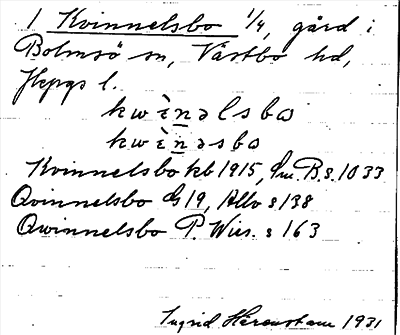 1 Kvinnelsbo 1/4, gård i
Bolmsö sn, Västbo hd,
Jkpgs l.
kwὲnəlsbω
kwὲnəsbω
Kvinnelsbo kb 1915, Am. B. s. 1033
Qvinnelsbo GS 19, Allv s 138
Qwinnelsbo P. Wies. s 163
Ingrid Härenstam 1931